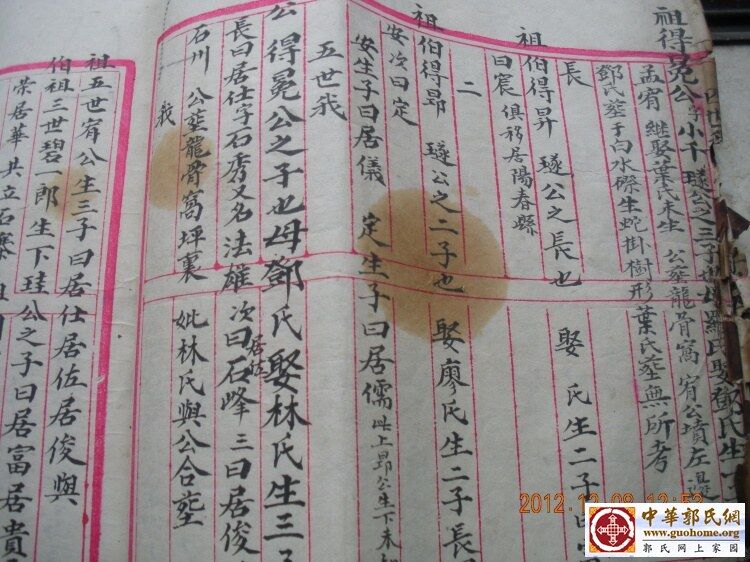 祖得冕公 字小千 璲公之三子也母羅氏娶鄧氏生
孟宥 繼娶葉氏未生 公塟龍骨窩宥公墳左
鄧氏塟于白水磜生蛇掛樹形葉氏塟無所考
長
祖伯得昇 璲公之長也 娶 氏生二子曰
曰宸 俱移居陽春縣
二
祖伯得昴 璲公之二子也 娶廖氏生二子長
安次曰定
安生子曰居儀 定生子曰居儒 以上昴公生下未
五世我
公得冕公之子也母鄧氏娶林氏生三子
長曰居仕字石秀又名法雄 次曰居佐石峰 三曰居俊
石川 公塟龍骨窩坪裏 妣林氏與公合塟
我
祖五世宥公生三子曰居仕居佐居俊與
伯祖三世碧一郎生下珪公之子曰居富居貴
榮居華共立石
2012.12.08 12:53
中華郭氏網
www.guohome.org
郭氏网上家园